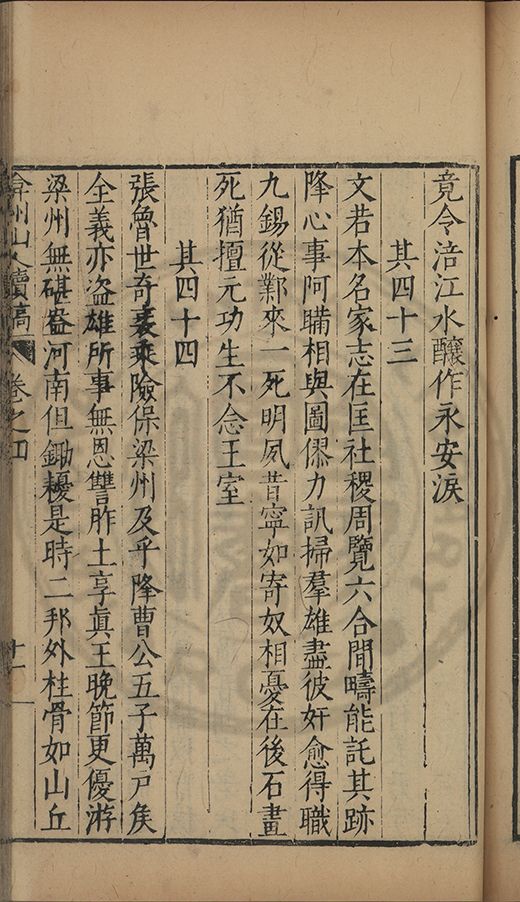 竟令涪江水釀作永安淚
其四十三
文若本名家志在匡社稷周覽六合間疇能託其跡
降心事阿瞞相與圖僇力訊掃羣雄盡彼奸愈得職
九錫從鄴來一死明夙昔寧如寄奴相憂在後石畫
死猶擅元功生不念王室
其四十四
張魯世奇衺乘險保梁州及乎降曹公五子萬戶矦
全義亦盜雄所事無恩讐胙土享眞王晚節更優游
梁州無碪𨫼河南但鋤耰是時二邦外拄骨如山丘
弇州山人續稿 卷之四 十一